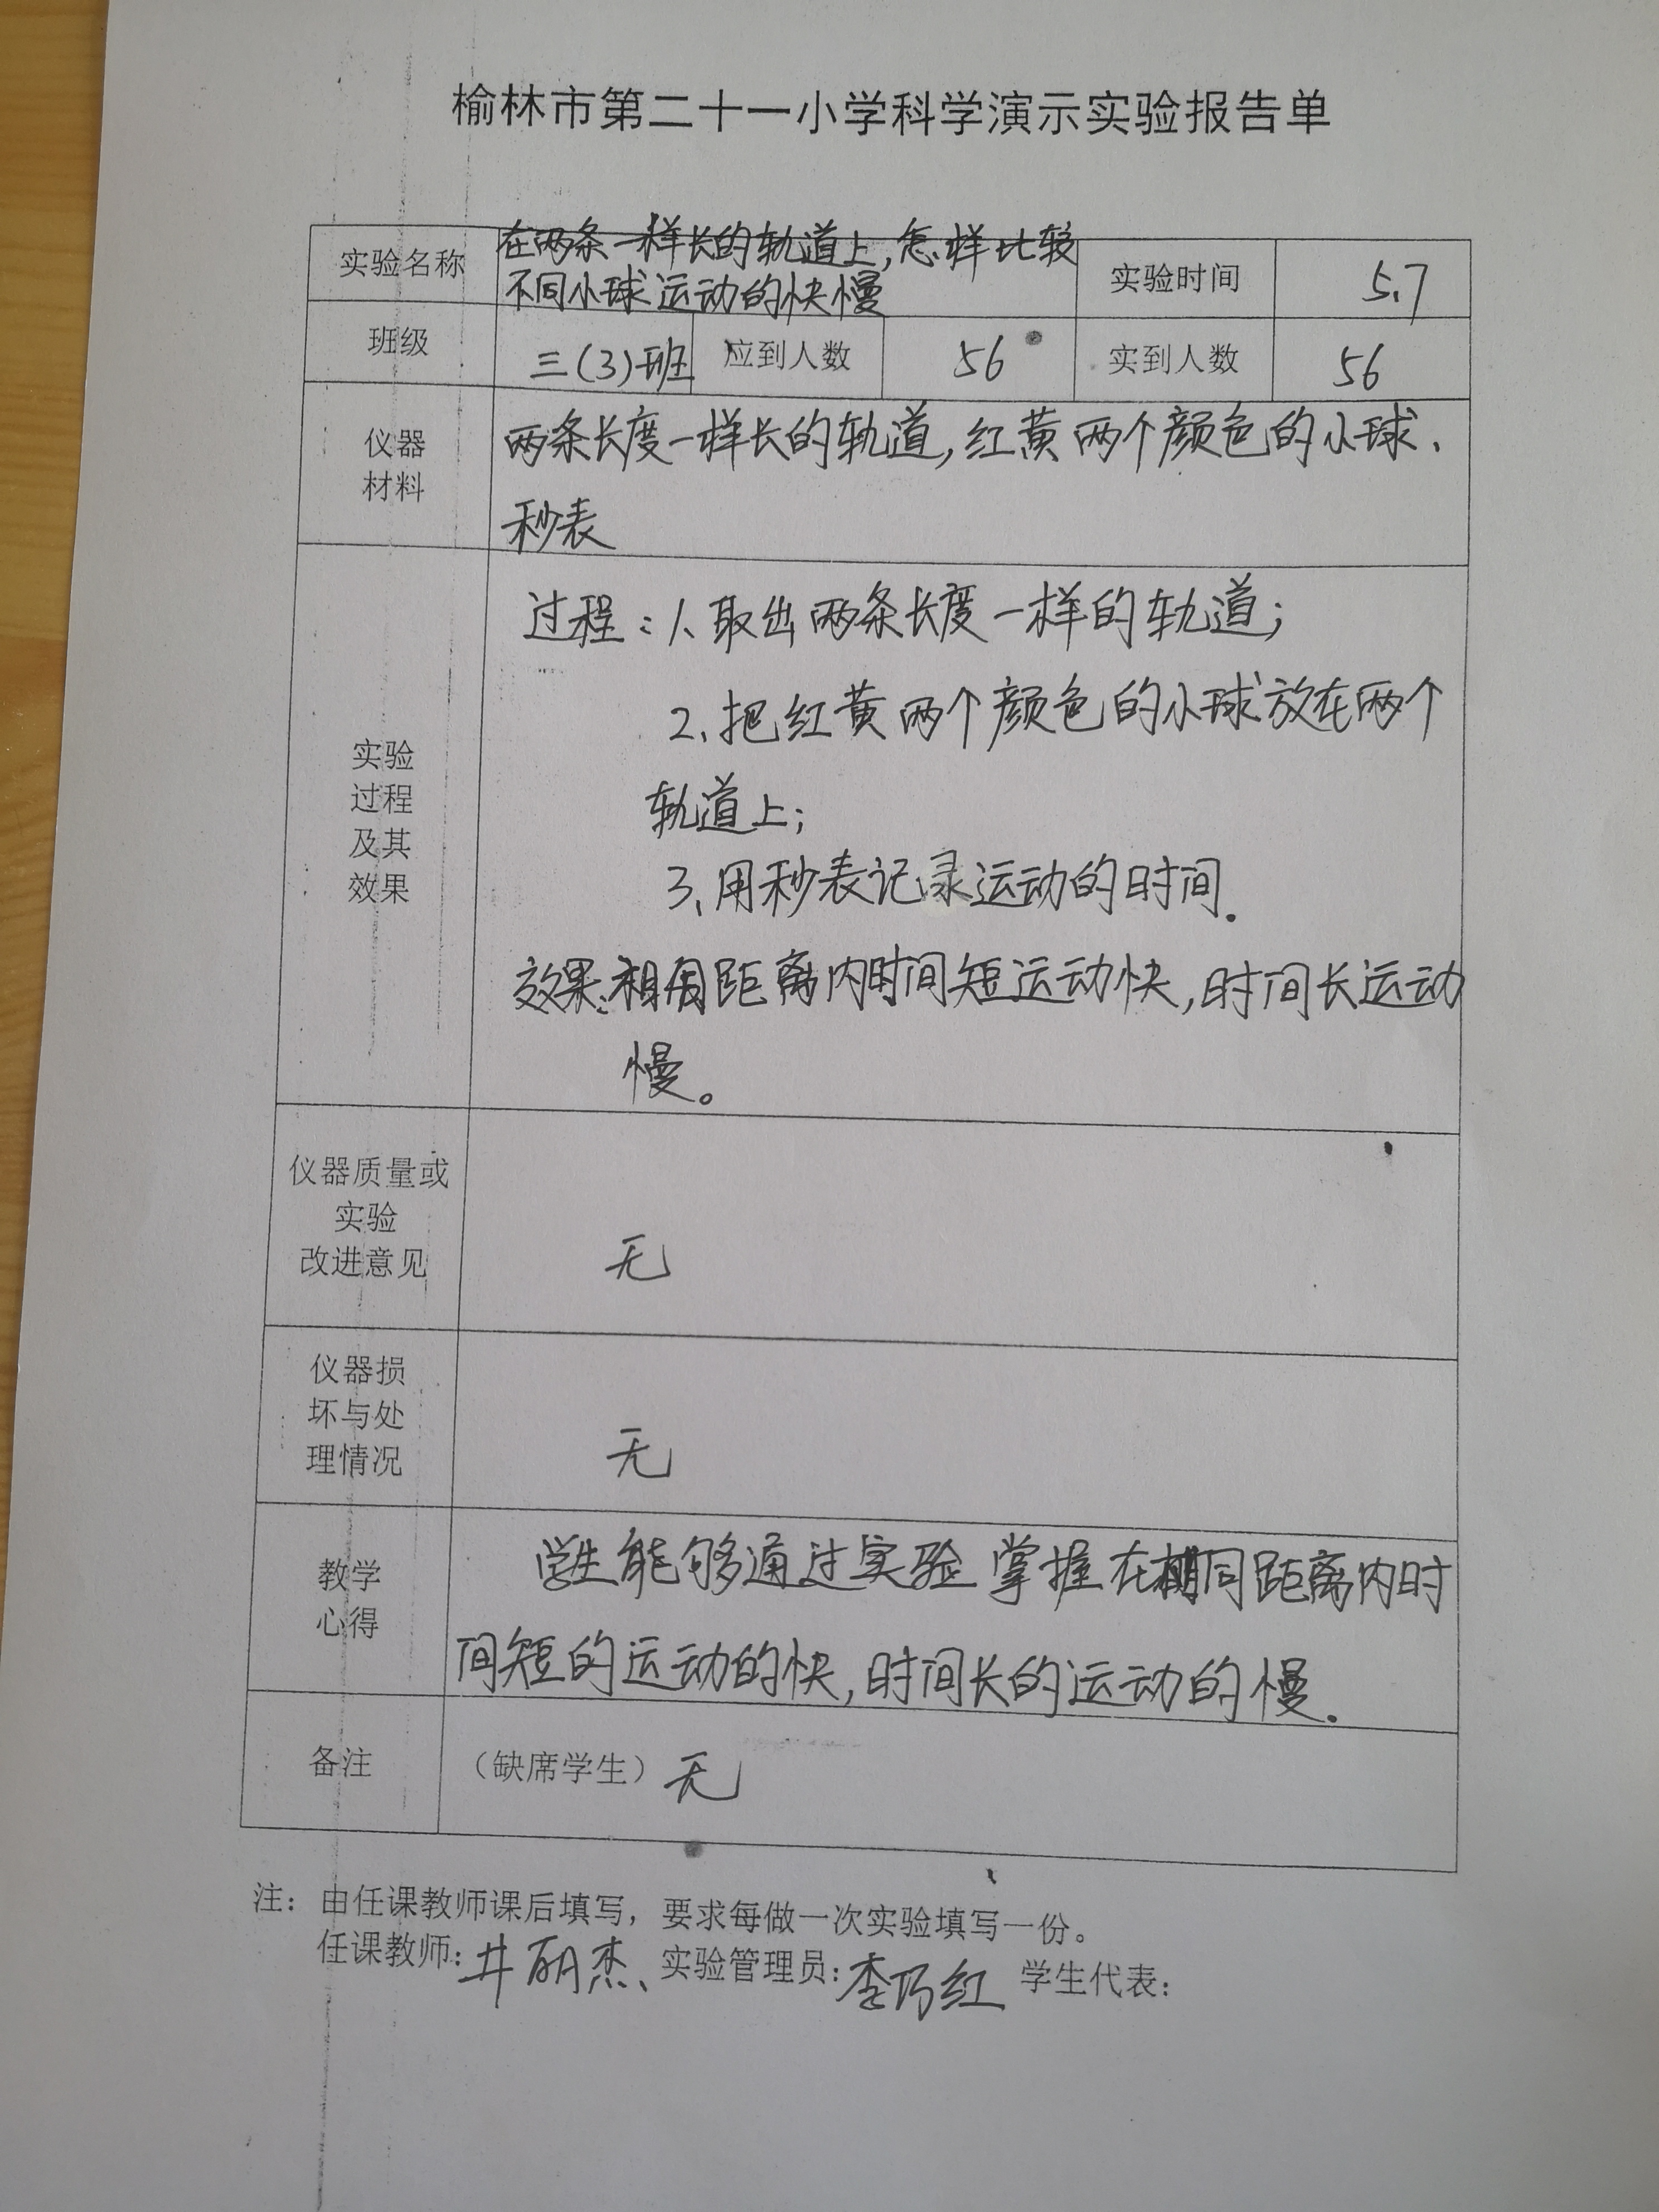 榆林市第二十一小学科学演示实验报告单
实验名称
在两条一样长的轨道上,怎样比较
不同小球运动的快慢
实验时间
5.7
班级
三(3)班
应到人数
56
实到人数
56
仪器
材料
两条长度一样长的轨道,红黄两个颜色的小球、
秒表
实验
过程
及其
效果
过程:1、取出两条长度一样的轨道;
2、把红黄两个颜色的小球放在两个
轨道上;
3、用秒表记录运动的时间.
效果:相同距离内时间短运动快,时间长运动
慢。
仪器质量或
实验
改进意见
无
仪器损
坏与处
理情况
无
教学
心得
学生能够通过实验掌握在相同距离内时
间短的运动的快,时间长的运动的慢.
备注
(缺席学生)无
注:由任课教师课后填写,要求每做一次实验填写一份。
任课教师:井丽杰、实验管理员:李巧红 学生代表: